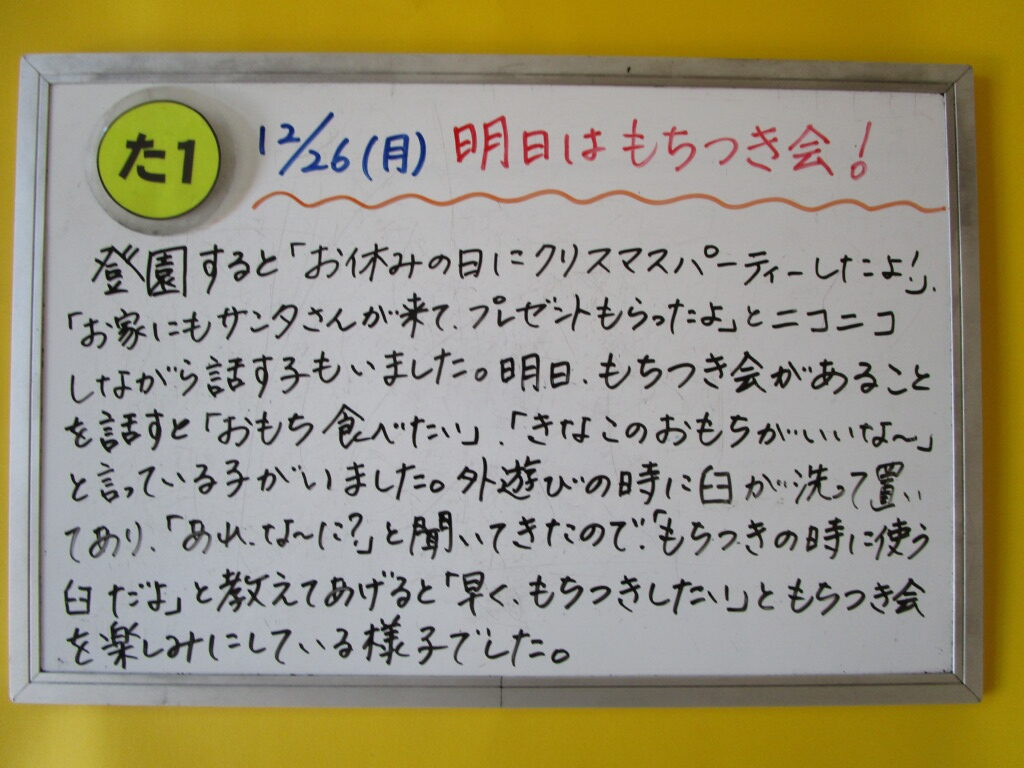 た1
12/26(月) 明日はもちつき会!
登園すると「お休みの日にクリスマスパーティーしたよ!」、
「お家にもサンタさんが来て、プレゼントもらったよ」とニコニコ
しながら話す子もいました。明日、もちつき会があること
を話すと「おもち食べたい」、「きなこのおもちがいいな~」
と言っている子がいました。外遊びの時に臼が洗って置い
てあり、「あれ、な~に?」と聞いてきたので、「もちつきの時に使う
臼だよ」と教えてあげると「早く、もちつきしたい」ともちつき会
を楽しみにしている様子でした。